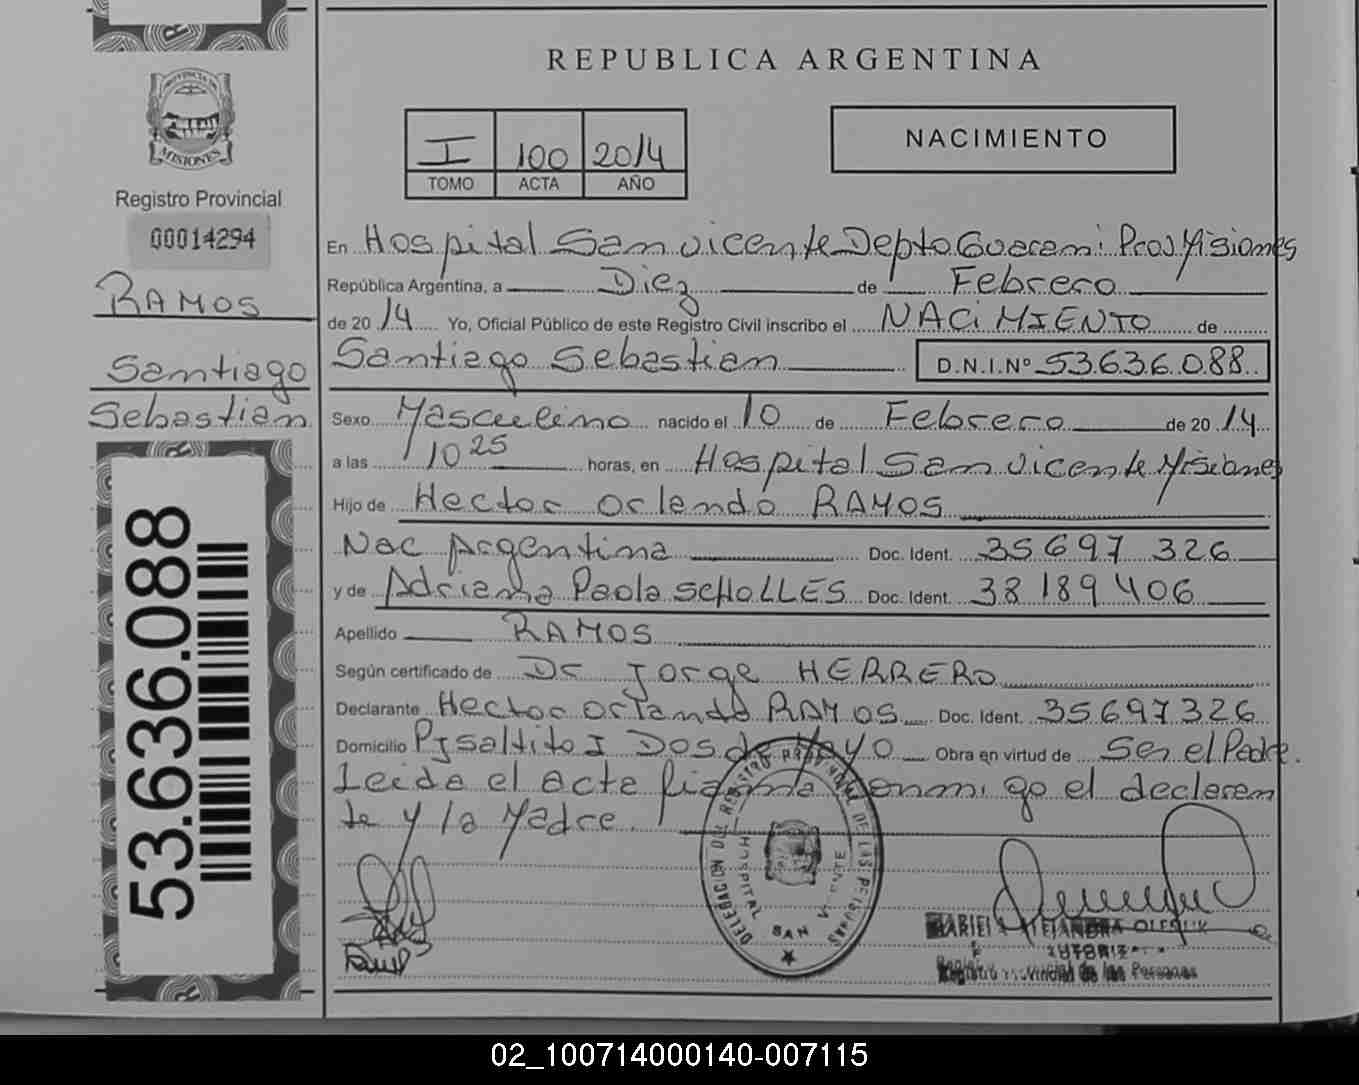 REPUBLICA ARGENTINA
PROVINCIA DE
MISIONES
Registro Provincial
00014294
RAMOS
Santiago
Sebastian
53.636.088
I 100 2014
TOMO ACTA AÑO
NACIMIENTO
En Hospital San Vicente Depto Guarani Prov Misiones
República Argentina, a Diez de Febrero
de 2014 Yo, Oficial Público de este Registro Civil inscribo el NACIMIENTO de
Santiago Sebastian D.N.I.Nº 53.636.088
Sexo Masculino nacido el 10 de Febrero de 2014
a las 10 25 horas, en Hospital San Vicente Misiones
Hijo de Hector Orlando RAMOS
Nac Argentina Doc. Ident. 35697 326
y de Adriana Paola SCHOLLES Doc. Ident. 38 189 406
Apellido RAMOS
Según certificado de Dr Jorge HERRERO
Declarante Hector Orlando RAMOS Doc. Ident. 35697326
Domicilio Dos de Mayo Obra en virtud de Ser el Padre.
Leida el acta firma conmigo el declaran
te y la Madre.
DELEGACION DEL REGISTRO PROVINCIAL DE LAS PERSONAS
HOSPITAL SAN VICENTE
Registro Provincial de las Personas
02_100714000140-007115